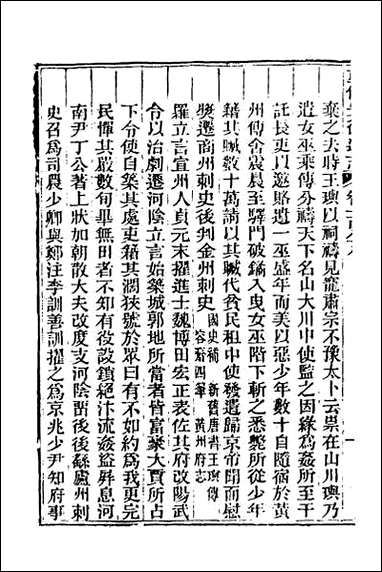 棄之去時王璵以祠禱見寵肅宗不豫太卜云祟在山川璵乃
遣女巫乘傳分禱天下名山大川中使監之因緣為姦所至干
託長吏以邀賂遺一巫盛年而美以惡少年數十自隨宿於黃
州傳舍震晨至驛門破鐍入曳女巫階下斬之悉斃所從少年
籍其贓數十萬請以其贓代貧民租中使發遣歸京帝聞而慰
奬遷商州刺史後判金州刺史
國史補 新舊唐書王璵傳
容齋四筆 黃州府志
羅立言宣州人貞元末擢進士魏博田宏正表佐其府改陽武
令以治劇遷河陰立言始築城郭地所當者皆富豪大賈所占
下令使自築其處吏籍其濶狹號於眾曰有不如約為我更完
民憚其嚴數旬畢無田者不知有役設鎖絕汴流姦盜屏息河
南尹丁公著上狀加朝散大夫改度支河陰留後後繇廬州刺
史召為司農少卿與鄭注李訓善訓擢之為京兆少尹知府事